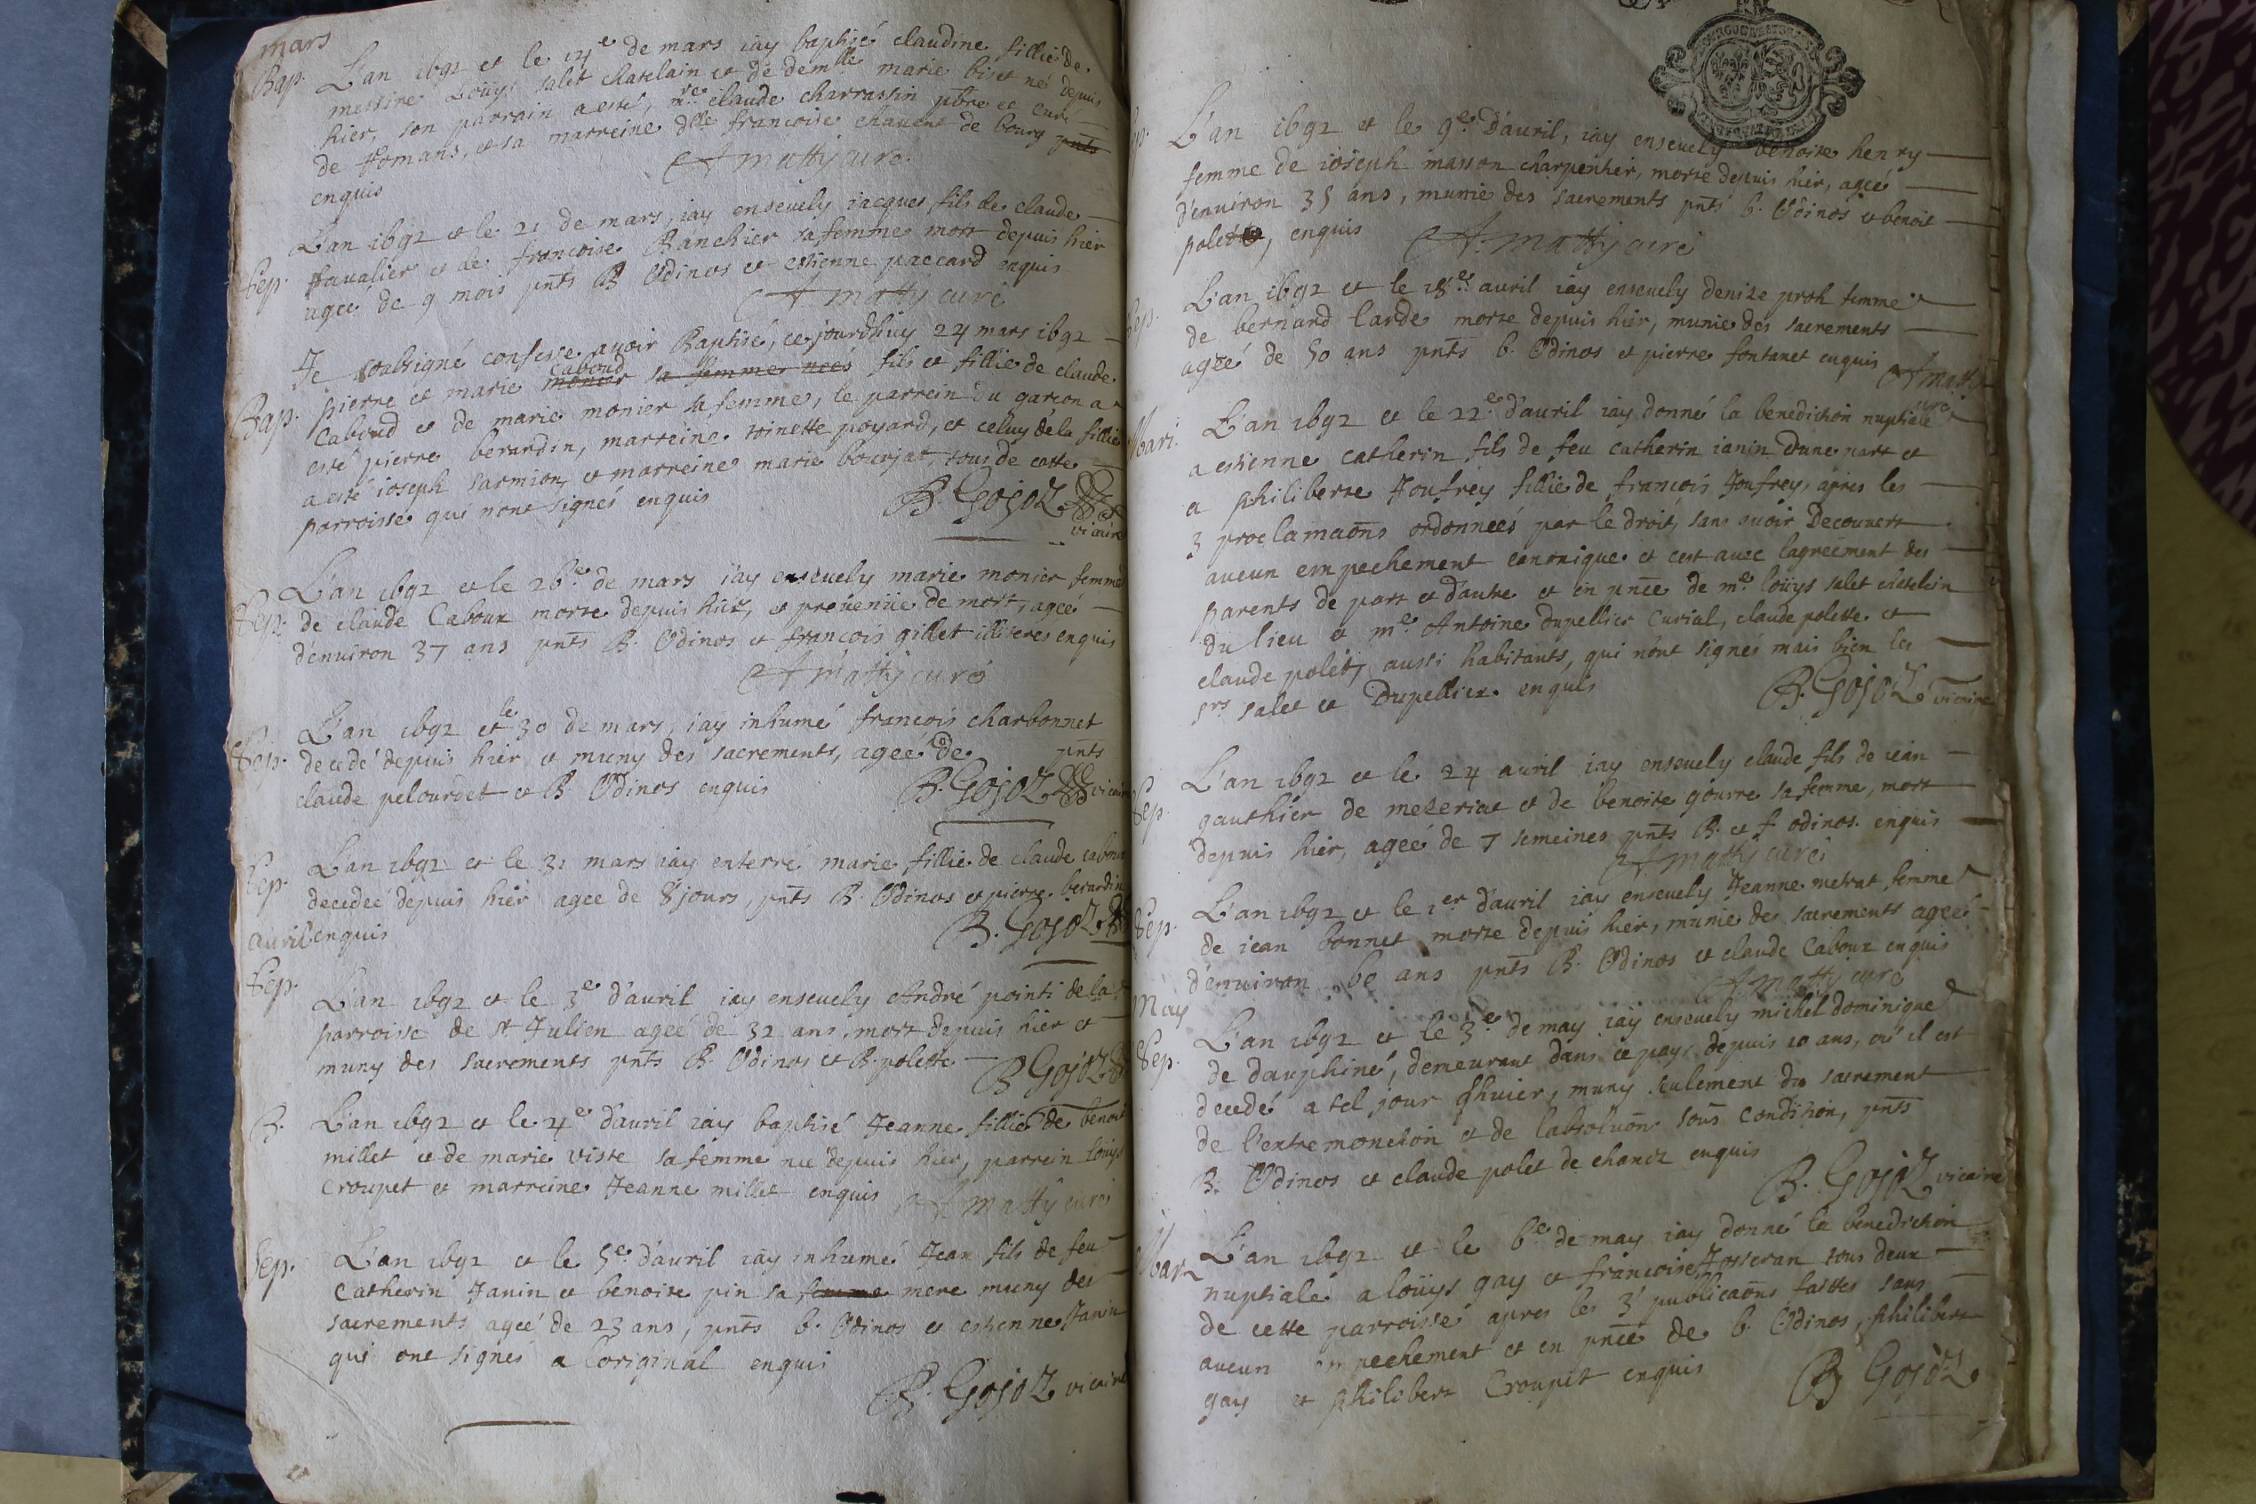 mars
Bap. L'an 1692 et le 14e de mars iay baptisé claudine fillie de
messire Loüys salet chatelain et de demlle marie biset né depuis
hier, son parrain a esté, mre claude charrassin pbre et curé
de Romans, et sa marreine dlle francoise chanent de bourg pnts
enquis
A matty curé.
Sep. L'an 1692 et le 21 de mars, iay ensevely iacques fils de claude
favalier et de francoise Banchier sa femme mort depuis hier
ageé de 9 mois pnts B Odinos et estienne paccard enquis
A matty curé
Bap. Je soubsigné confesse avoir Baptisé, ce jourdhuy 24 mars 1692
caboud
pierre et marie monier sa femme neés fils et fillie de claude
Caboud et de marie monier sa femme, le parrein du garcon a
esté pierre berardin, marreine toinette poyard, et celuy de la fillie
a esté ioseph sarmion, et marreine marie bourjat, tous de cette
parroisse qui nont signés enquis
B. Gojoz
vicaire
Sep. L'an 1692 et le 26e de mars iay ensevely marie monier femme
de claude Caboux morte depuis hier, et prevenüe de mort, ageé
d'environ 37 ans pnts B. Odinos et francois gillet illiteres enquis
A matty curé
Sep. L'an 1692 et le 30 de mars, iay inhumé francois charbonnet
decedé depuis hier et muny des sacrements, ageé de pnts
claude pelourdet et B. Odinos enquis
B. Gojoz vicaire
Sep. L'an 1692 et le 31 mars iay enterré marie fillie de claude caboux
decedeé depuis hier agee de 8 jours, pnts B. Odinos et pierre berardin
enquis
B. Gojoz
avril
Sep. L'an 1692 et le 3e d'avril iay ensevely André pointi de la
parroisse de st Julien ageé de 32 ans, mort depuis hier et
muny des sacrements pnts B. Odinos et B. polette
B Gojoz
B. L'an 1692 et le 4e d'avril iay baptisé Jeanne fillie de benoit
millet et de marie viste sa femme neé depuis hier, parrein loüys
Croupet et marreine Jeanne millet enquis
A matty curé
Sep. L'an 1692 et le 5e d'avril iay inhumé Jean fils de feu
Catherin Janin et benoite pin sa femme mere muny des
sacrements ageé de 23 ans, pnts b. Odinos et estienne Janin
qui ont signés a loriginal enquis
B. Gojoz vicaire
L'an 1692 et le 9e d'avril, iay ensevely benoite henry
femme de ioseph masson charpentier, morte depuis hier, ageé
d'environ 35 ans, munie des sacrements pnts b. Odinos et benoit
polet, enquis
A. matty curé
Sep. L'an 1692 et le 18e avril iay ensevely denize proh femme
de bernard larde morte depuis hier, munie des sacrements
ageé de 50 ans pnts b. Odinos et pierre fontanet enquis
A matty
curé
Mari. L'an 1692 et le 22e d'avril iay donné la benediction nuptiale
a estienne catherin fils de feu catherin ianin dune part et
a philiberte Joufrey fillie de francois Joufrey, apres les
3 proclamaons ordonneés par le droit, sans avoir Decouvert
aucun empechement canonique et cest avec lagréement des
parents de part et d'autre et en pnce de me loüys salet chatelain
du lieu et me Antoine dupellier Curial, claude polette et
claude polet, aussi habitants, qui nont signés mais bien les
srs salet et Dupellier enquis
B. Gojoz vicaire
Sep. L'an 1692 et le 24 avril iay ensevely claude fils de iean
gauthier de mezeriat et de benoite gourre sa femme, mort
depuis hier, ageé de 7 semeines pnts B. et f odinos. enquis
A matty curé
Sep. L'an 1692 et le 1er d'avril iay ensevely Jeanne metrat femme
de iean bonnet morte depuis hier, munie des sacrements ageé
d'environ 60 ans pnts B. Odinos et claude Caboux enquis
A matty curé
May
Sep. L'an 1692 et le 3e de may iay ensevely michel dominique
de dauphiné, demeurant dans ce pays depuis 10 ans, où il est
decedé a tel jour d'hier, muny seulement du sacrement
de l'extremonction et de labsoluon sous condition, pnts
B. Odinos et claude polet de chanoz enquis
B. Gojoz vicaire
Mar. L'an 1692 et le 6e de may iay donné la benediction
nuptiale a loüys gay et francoise Josseran tous deux
de cette parroisse apres les 3 publicaons faittes sans
aucun empechement et en pnce de b. Odinos, philibert
gay et philibert Croupet enquis
B Gojoz